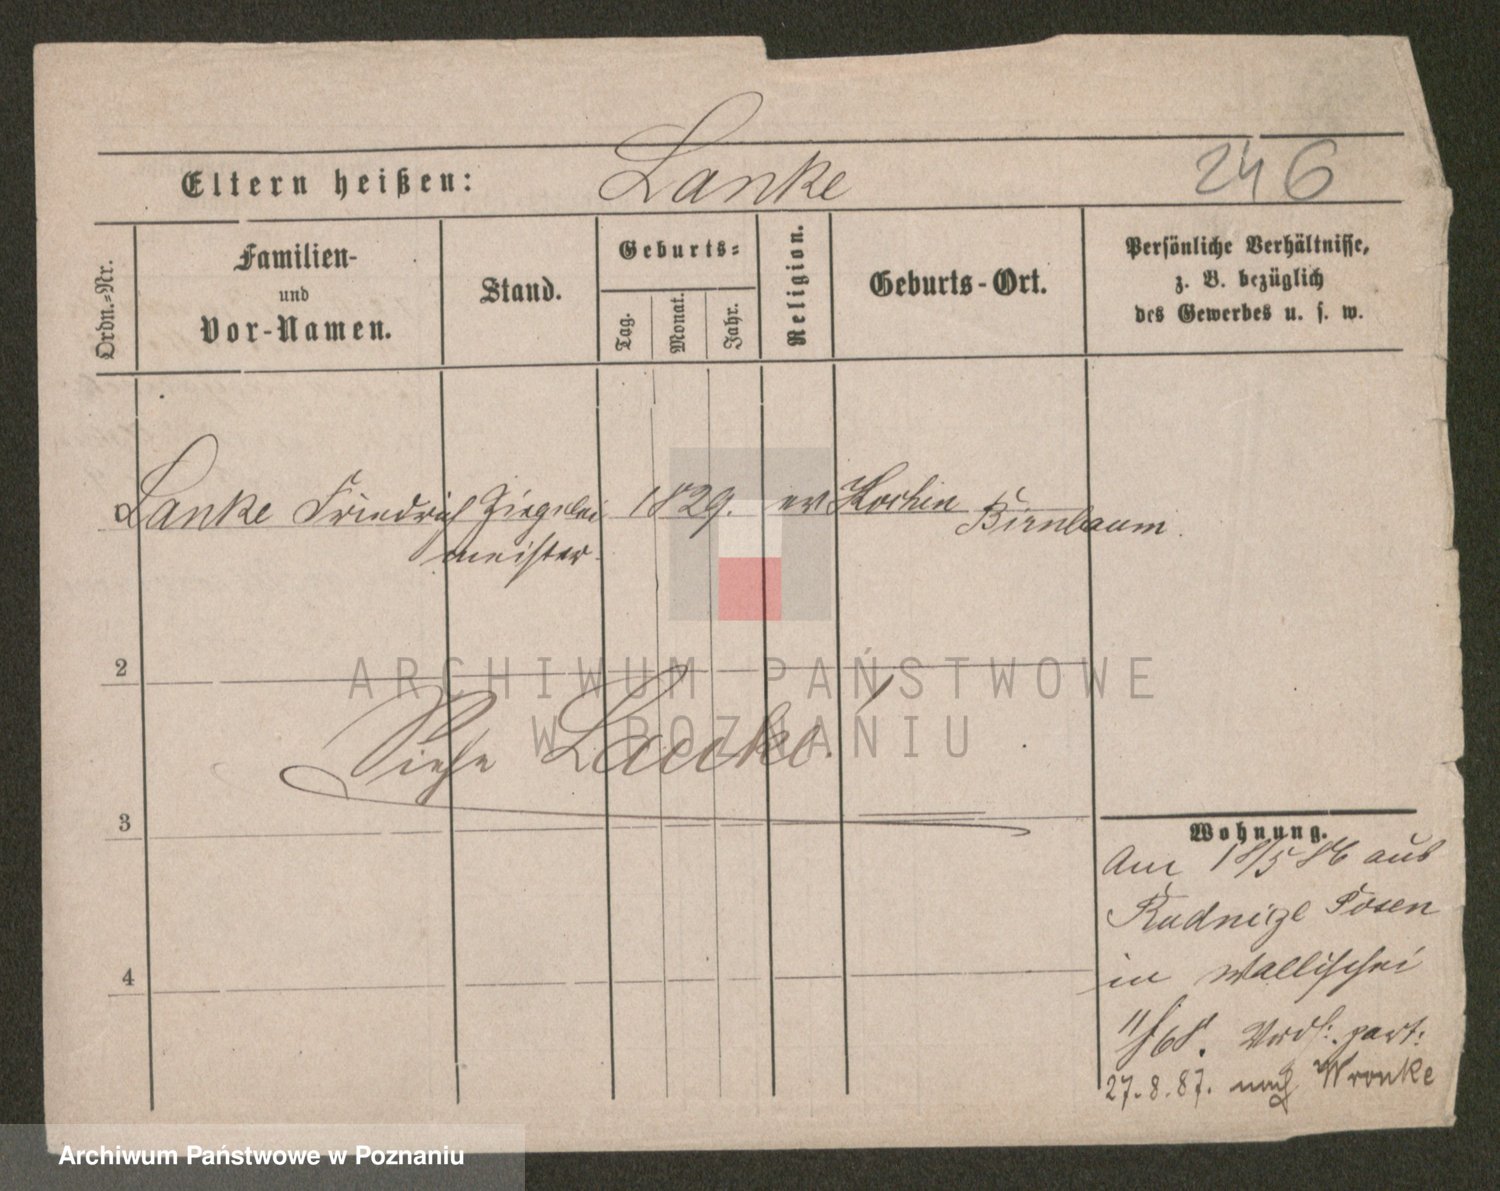 Eltern heißen: Lanke 246
Ordn.-Nr.
Familien-
und
Vor-Namen.
Stand.
Geburts-
Tag.
Monat.
Jahr.
Religion.
Geburts-Ort.
Persönliche Verhältnisse,
z. B. bezüglich
des Gewerbes u. s. w.
Lanke Friedrich Ziegelei 1829. ev Birnbaum.
meister.
2
ARCHIWUM PAŃSTWOWE
W POZNANIU
Siehe
3
Wohnung.
Am 18/5 86 aus
Posen
in Wallischei
part:
27.8.87. nach Wronke
4
Archiwum Państwowe w Poznaniu